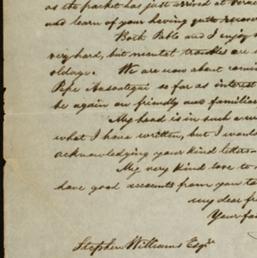 as the packet has just arrived at
and learn of your having quite
Both Pablo and I enjoy
very hard, but mental troubles are
old age. We are now about
Pepe so far as interest
be again on friendly and familiar
My head is in such a
what I have written, but I would
acknowledging your kind letters
My very kind love to
have good accounts from you
my dear
Your
Stephen Williams Esqr.